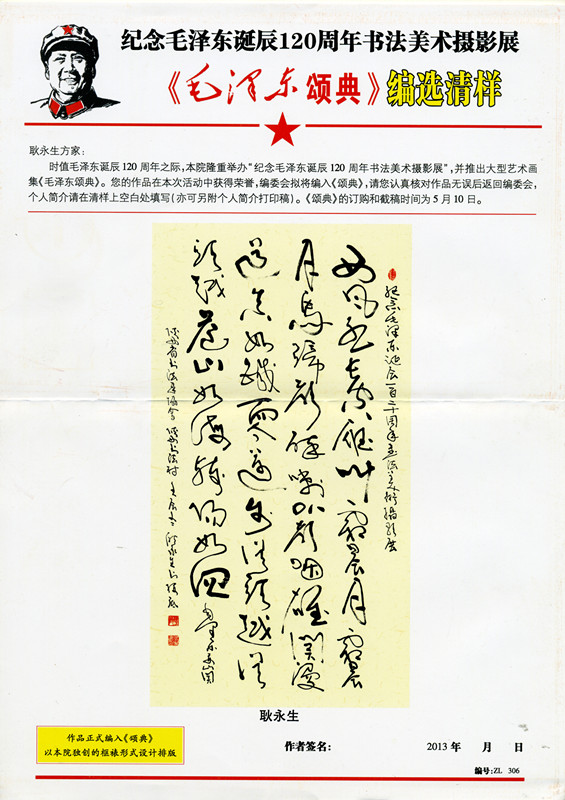 纪念毛泽东诞辰120周年书法美术摄影展
《毛泽东颂典》编选清样
耿永生方家:
时值毛泽东诞辰120周年之际,本院隆重举办“纪念毛泽东诞辰120周年书法美术摄影展”,并推出大型艺术画
集《毛泽东颂典》。您的作品在本次活动中获得荣誉,编委会拟将编入《颂典》,请您认真核对作品无误后返回编委会,
个人简介请在清样上空白处填写(亦可另附个人简介打印稿)。《颂典》的订购和截稿时间为5月10日。
纪念毛泽东诞辰一百二十周年书法美术摄影展
西风烈长空雁叫霜晨月霜晨
月马蹄声碎喇叭声咽雄关漫
道真如铁而今迈步从头越从
头越苍山如海残阳如血 毛泽东娄山关
耿永生
作品正式编入《颂典》
以本院独创的框裱形式设计排版
作者签名:
2013年 月 日
编号:ZL 306